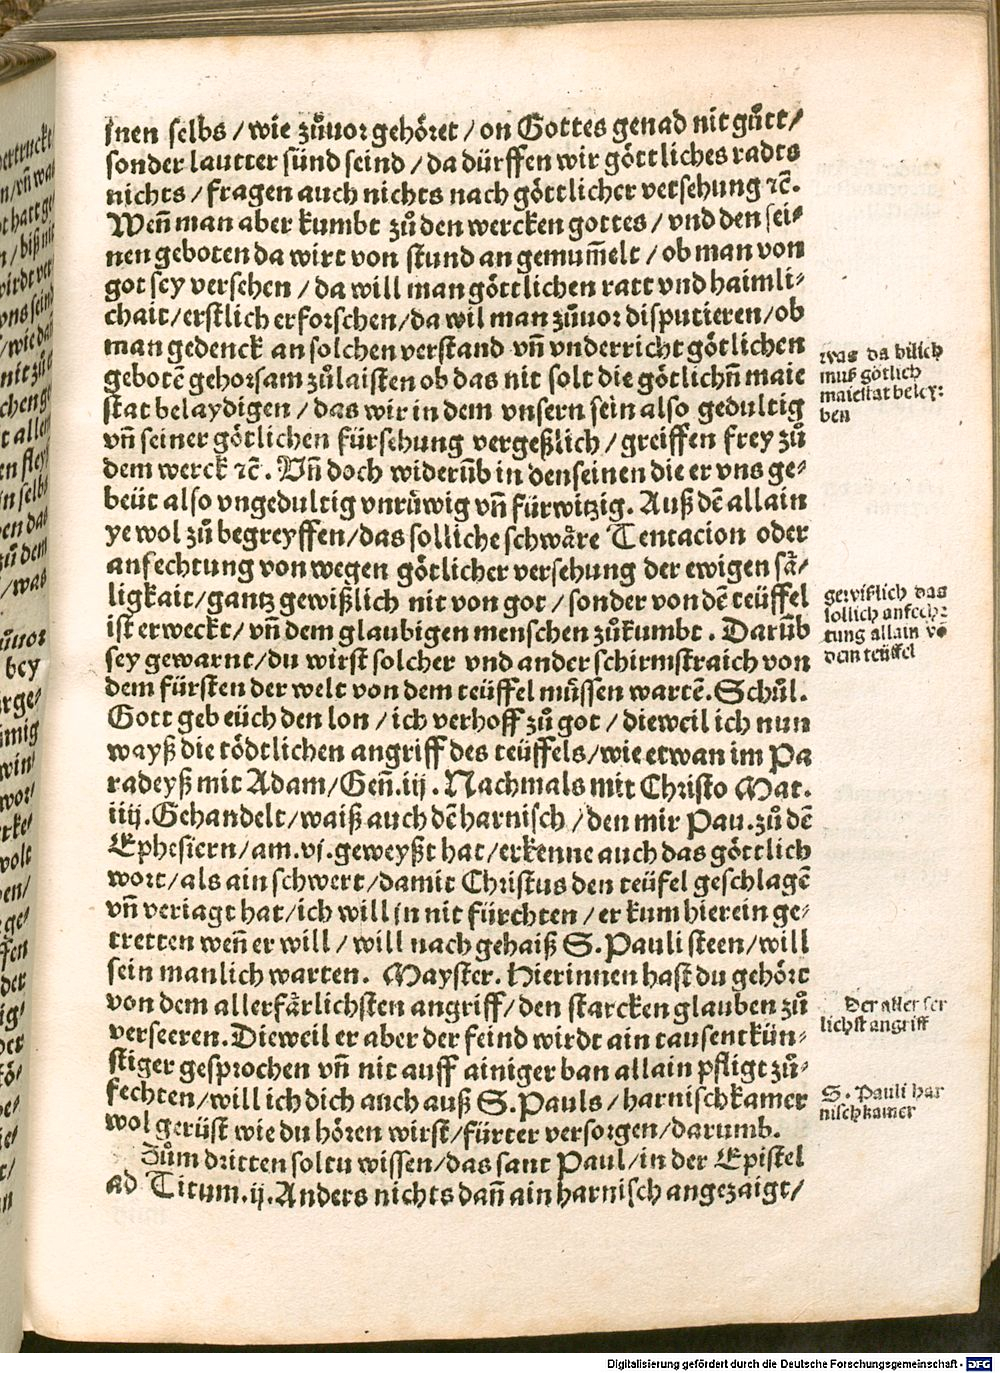 jnen selbs / wie zůuor gehöret / on Gottes genad nit gůtt /
sonder lautter sünd seind / da dürffen wir göttliches radts
nichts / fragen auch nichts nach göttlicher versehung ꝛc̃.
Weñ man aber kumbt zů den wercken gottes / vnd den sei-
nen geboten da wirt von stund an gemum̃elt / ob man von
got sey versehen / da will man göttlichen ratt vnd haimli-
chait / erstlich erforschen / da wil man zůuor disputieren / ob
man gedenck an solchen verstand vñ vnderricht götlichen
gebotẽ gehorsam zůlaisten ob das nit solt die götlichñ maie
stat belaydigen / das wir in dem vnsern sein also gedultig
vñ seiner götlichen fürsehung vergeßlich / greiffen frey zů
dem werck ꝛc̃. Vñ doch widerũb in denseinen die er vns ge-
beüt also vngedultig vnrüwig vñ fürwitzig. Auß dẽ allain
ye wol zů begreyffen / das solliche schwäre Tentacion oder
anfechtung von wegen götlicher versehung der ewigen sä-
ligkait / gantz gewißlich nit von got / sonder von dẽ teüffel
ist erweckt / vñ dem glaubigen menschen zůkumbt. Darũb
sey gewarnt / du wirst solcher vnd ander schirmstraich von
dem fürsten der welt von dem teüffel müssen wartẽ. Schůl.
Gott geb eüch den lon / ich verhoff zů got / dieweil ich nun
wayß die tödtlichen angriff des teüffels / wie etwan im Pa
radeyß mit Adam / Geñ.iij. Nachmals mit Christo Mat.
iiij. Gehandelt / waiß auch dẽ harnisch / den mir Pau. zů dẽ
Ephesiern / am.vj. geweyßt hat / erkenne auch das göttlich
wort / als ain schwert / damit Christus den teüfel geschlagẽ
vñ veriagt hat / ich will jn nit fürchten / er kum hierein ge-
tretten weñ er will / will nach gehaiß S. Pauli steen / will
sein manlich warten. Mayster. Hierinnen hast du gehört
von dem allerfärlichsten angriff / den starcken glauben zů
verseeren. Dieweil er aber der feind wirdt ain tausentkün-
stiger gesprochen vñ nit auff ainiger ban allain pfligt zů-
fechten / will ich dich auch auß S. Pauls / harnischkamer
wol gerüst wie du hören wirst / fürter versorgen / darumb.
Zům dritten soltu wissen / das sant Paul / in der Epistel
ad Titum.ij. Anders nichts dañ ain harnisch angezaigt /
was da bilich
muß götlich
maiestat beley-
ben
gewißlich das
sollich anfech-
tung allain võ
dem teüffel
Der aller fer
lichst angriff
S. Pauli har
nischkamer
Digitalisierung gefördert durch die Deutsche Forschungsgemeinschaft - DFG